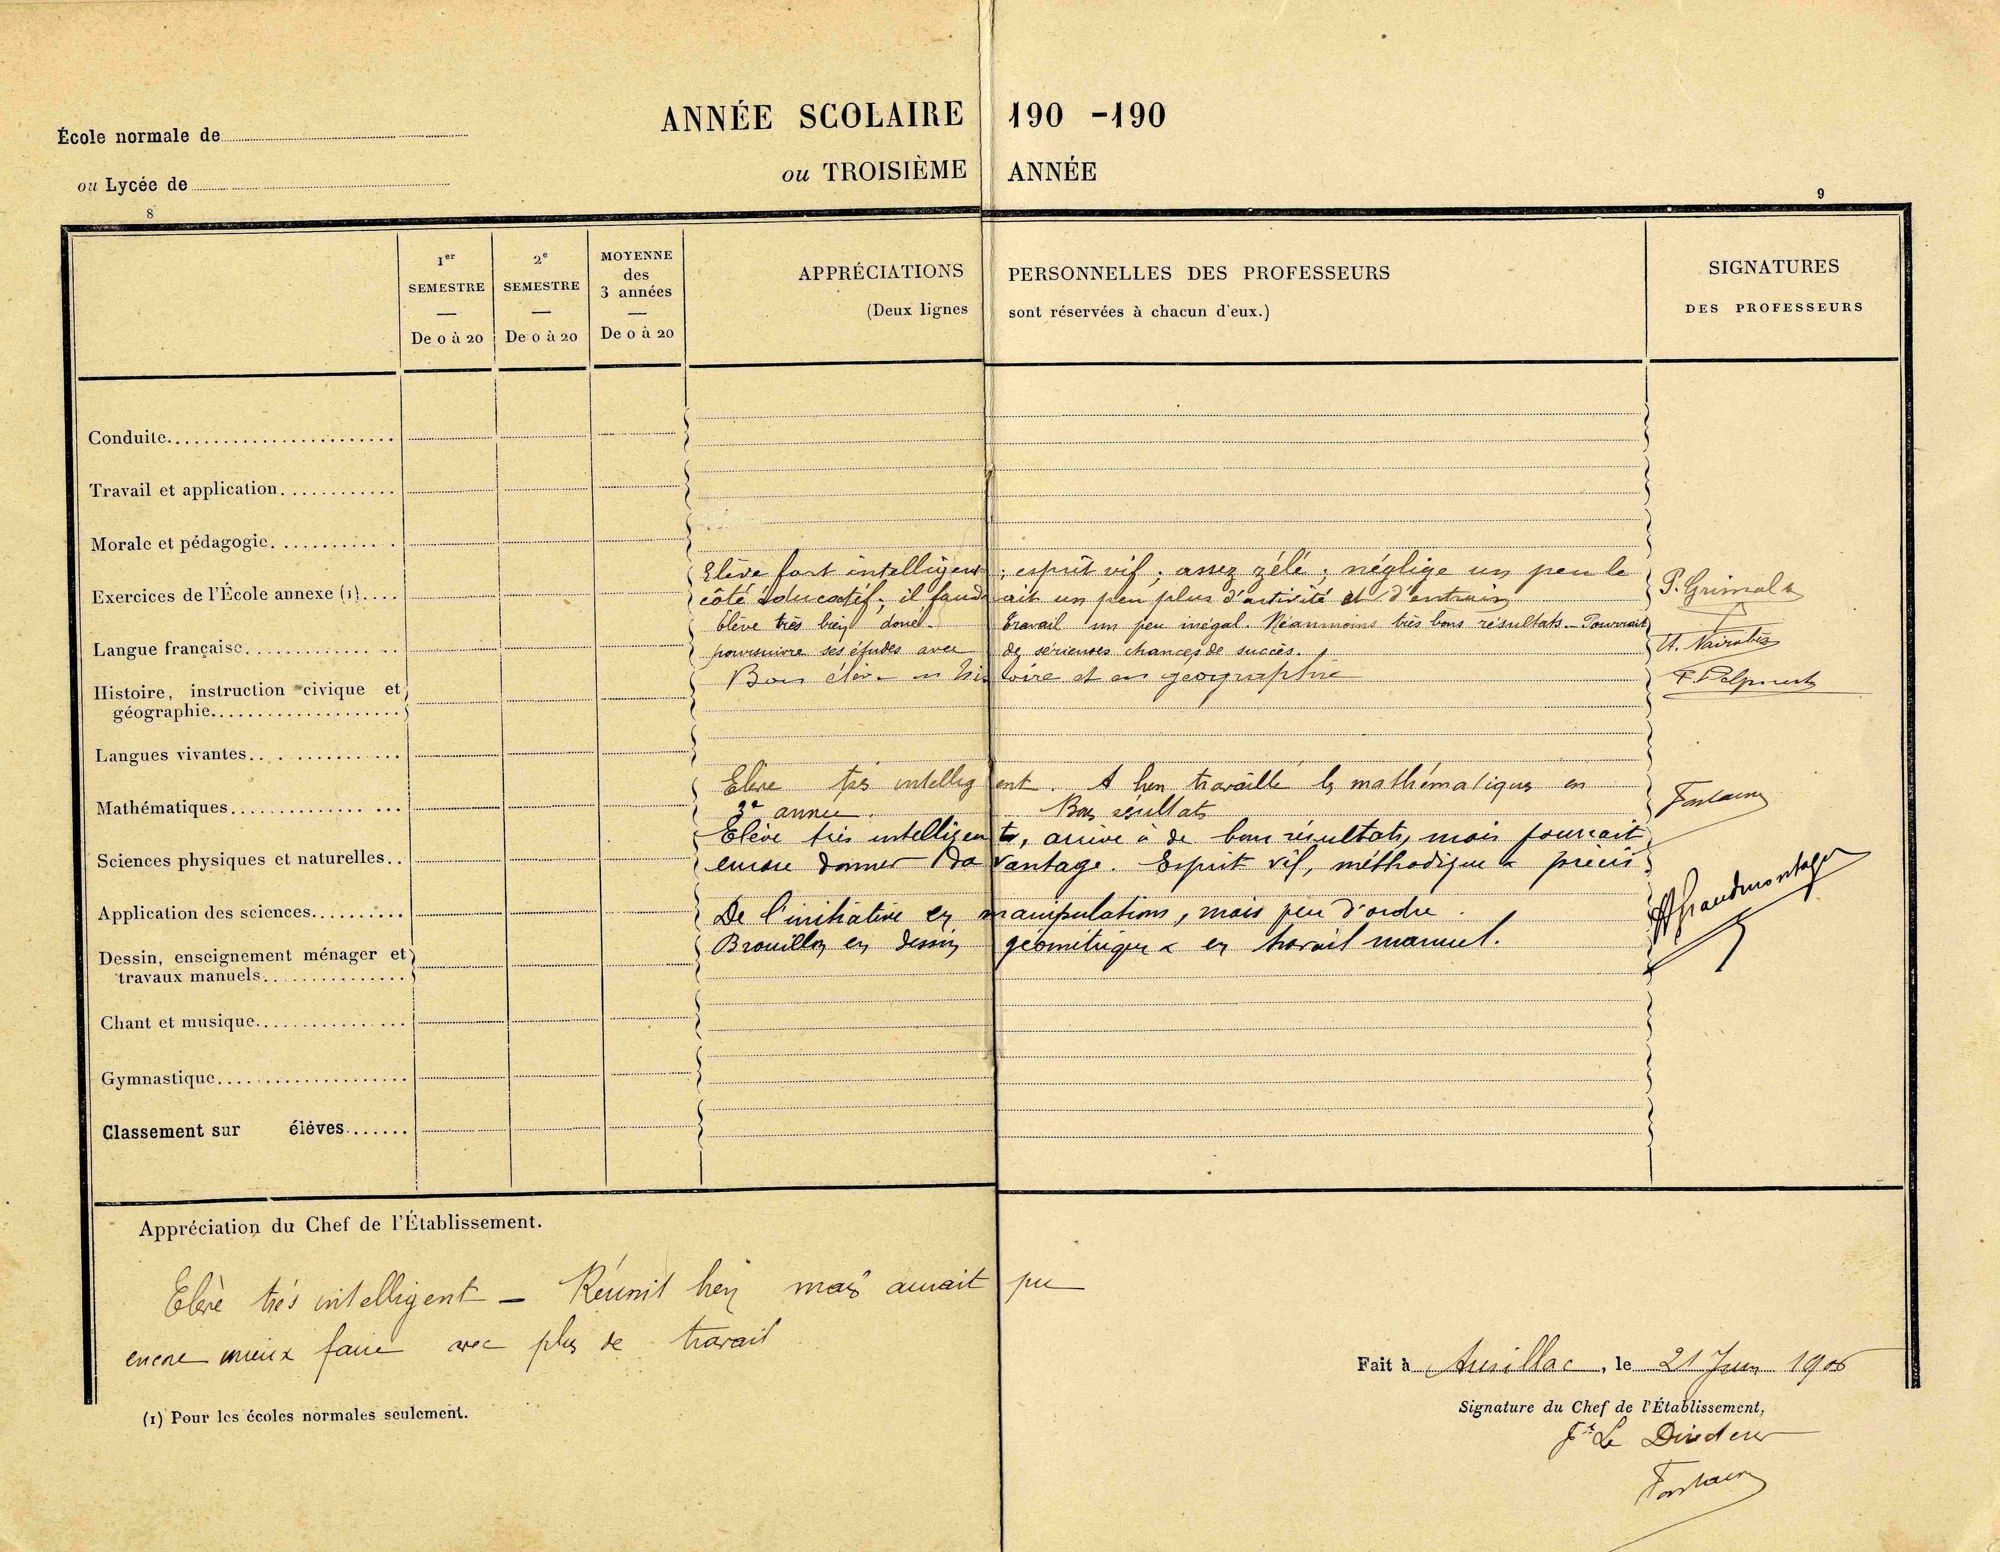 École normale de
ANNÉE SCOLAIRE 190 -190
ou Lycée de
ou TROISIÈME ANNÉE
8
9
1er SEMESTRE — De 0 à 20
2e SEMESTRE — De 0 à 20
MOYENNE des 3 années — De 0 à 20
APPRÉCIATIONS PERSONNELLES DES PROFESSEURS
(Deux lignes sont réservées à chacun d'eux.)
SIGNATURES
DES PROFESSEURS
Conduite
Travail et application
Morale et pédagogie
Elève fort intelligent ; esprit vif ; assez zélé ; néglige un peu le
Exercices de l'École annexe (1)
côté éducatif ; il faudrait un peu plus d'activité et d'entrain
P. Grimal
Elève très bien doué. Travail un peu inégal. Néanmoins très bons résultats. Pourrait
Langue française
poursuivre ses études avec de sérieuses chances de succès.
Bon élève en histoire et en géographie
Histoire, instruction civique et
géographie
Langues vivantes
Elève très intelligent. A bien travaillé les mathématiques en
Mathématiques
3e année. Bons résultats
Fontaine
Elève très intelligent, arrive à de bons résultats, mais pourrait
Sciences physiques et naturelles
encore donner davantage. Esprit vif, méthodique & précis
Application des sciences
De l'initiative en manipulations, mais peu d'ordre.
Brouillon en dessin géométrique & en travail manuel.
Dessin, enseignement ménager et
travaux manuels
Chant et musique
Gymnastique
Classement sur élèves
Appréciation du Chef de l'Établissement.
Elève très intelligent — Réunit bien mais aurait pu
encore mieux faire avec plus de travail
Fait à Aurillac, le 21 Juin 1906
(1) Pour les écoles normales seulement.
Signature du Chef de l'Établissement,
Pr Le Directeur
Fontaine